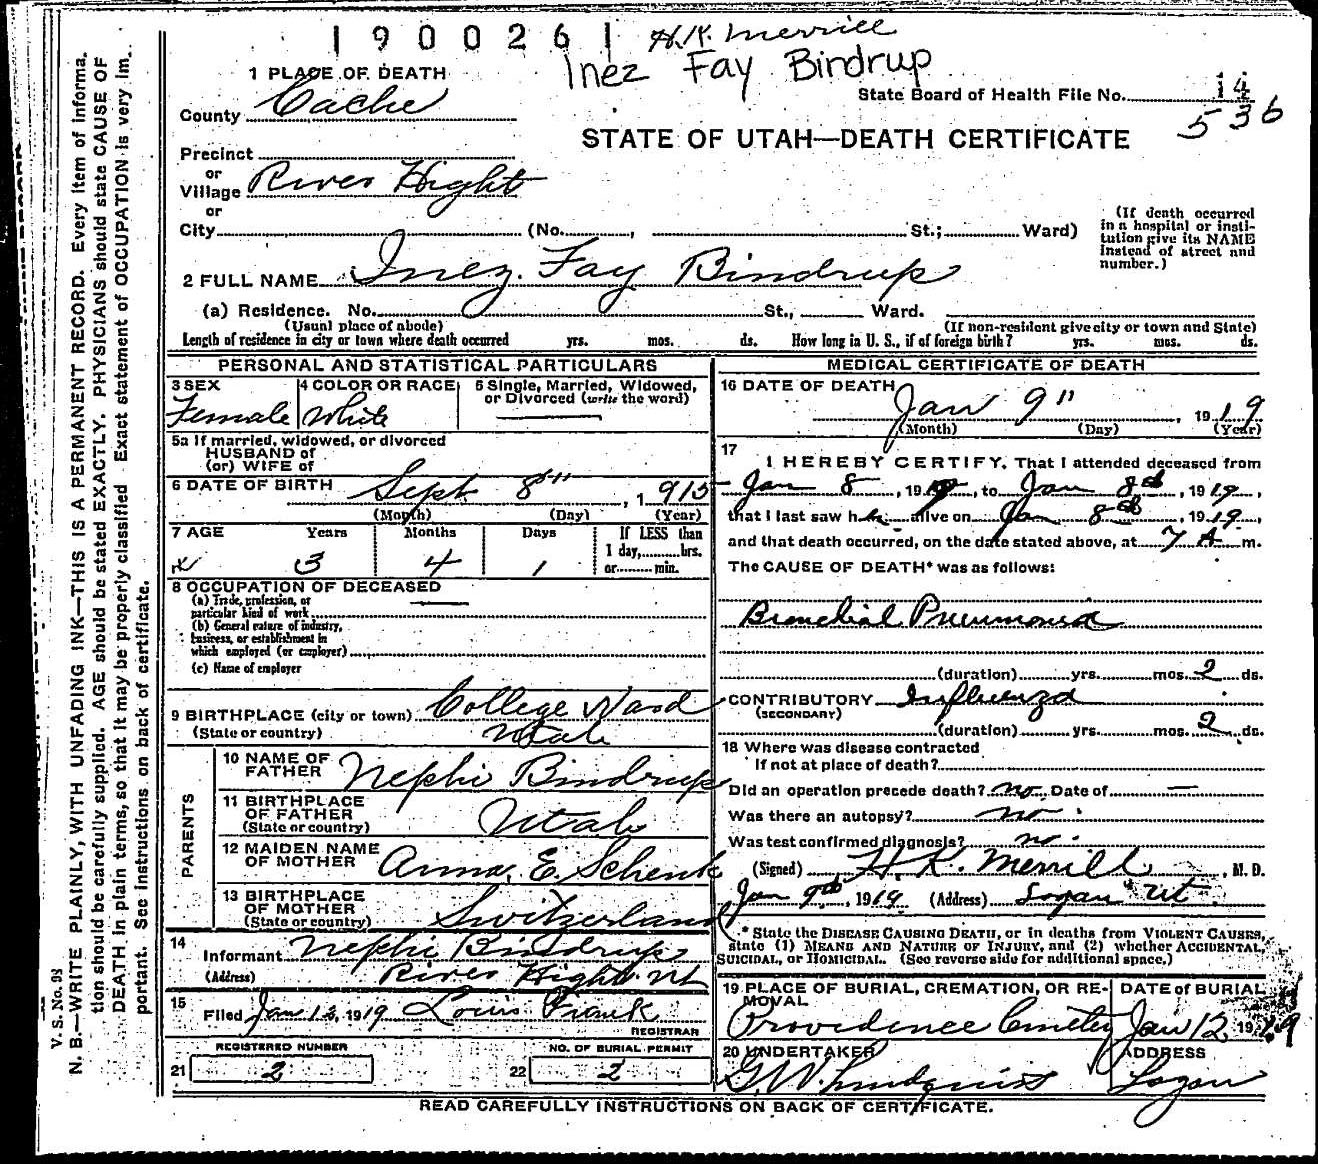 1900261 H.K. Merrill
Inez Fay Bindrup
1 PLACE OF DEATH
County Cache
State Board of Health File No. 14
536
STATE OF UTAH—DEATH CERTIFICATE
Precinct
or
Village River Hight
or
City (No. , St.; Ward)
(If death occurred
in a hospital or insti-
tution give its NAME
instead of street and
number.)
2 FULL NAME Inez Fay Bindrup
(a) Residence. No. St., Ward.
(Usual place of abode) (If non-resident give city or town and State)
Length of residence in city or town where death occurred yrs. mos. ds. How long in U. S., if of foreign birth? yrs. mos. ds.
PERSONAL AND STATISTICAL PARTICULARS
3 SEX 4 COLOR OR RACE 5 Single, Married, Widowed,
or Divorced (write the word)
Female White —
5a If married, widowed, or divorced
HUSBAND of
(or) WIFE of
6 DATE OF BIRTH Sept 8th, 1915
(Month) (Day) (Year)
7 AGE Years Months Days If LESS than
1 day, hrs.
3 4 1 or min.
8 OCCUPATION OF DECEASED
(a) Trade, profession, or
particular kind of work —
(b) General nature of industry,
business, or establishment in
which employed (or employer)
(c) Name of employer
9 BIRTHPLACE (city or town) College Ward
(State or country) Utah
PARENTS
10 NAME OF
FATHER Nephi Bindrup
11 BIRTHPLACE
OF FATHER
(State or country) Utah
12 MAIDEN NAME
OF MOTHER Anna E. Schenk
13 BIRTHPLACE
OF MOTHER
(State or country) Switzerland
14
Informant Nephi Bindrup
(Address) River Hight Ut
15
Filed Jan 12, 1919 Louis Frank
REGISTRAR
REGISTERED NUMBER NO. OF BURIAL PERMIT
21 2 22 2
MEDICAL CERTIFICATE OF DEATH
16 DATE OF DEATH
Jan 9", 1919
(Month) (Day) (Year)
17
I HEREBY CERTIFY, That I attended deceased from
Jan 8, 1919, to Jan 8th, 1919,
that I last saw h alive on Jan 8th, 1919,
and that death occurred, on the date stated above, at 7 A m.
The CAUSE OF DEATH* was as follows:
Bronchial Pneumonia
(duration) yrs. mos. 2 ds.
CONTRIBUTORY Influenza
(SECONDARY)
(duration) yrs. mos. 2 ds.
18 Where was disease contracted
If not at place of death?
Did an operation precede death? no Date of —
Was there an autopsy? no
Was test confirmed diagnosis? no
(Signed) H. K. Merrill, M. D.
Jan 9th, 1919 (Address) Logan Ut
* State the DISEASE CAUSING DEATH, or in deaths from VIOLENT CAUSES,
state (1) MEANS AND NATURE OF INJURY, and (2) whether ACCIDENTAL,
SUICIDAL, or HOMICIDAL. (See reverse side for additional space.)
19 PLACE OF BURIAL, CREMATION, OR RE-
MOVAL
DATE of BURIAL
Providence Cemetery Jan 12 1919
20 UNDERTAKER ADDRESS
G. W. Lindquist Logan
READ CAREFULLY INSTRUCTIONS ON BACK OF CERTIFICATE.
V. S. No. 98
N. B.—WRITE PLAINLY, WITH UNFADING INK—THIS IS A PERMANENT RECORD. Every item of informa-
tion should be carefully supplied. AGE should be stated EXACTLY. PHYSICIANS should state CAUSE OF
DEATH in plain terms, so that it may be properly classified. Exact statement of OCCUPATION is very im-
portant. See instructions on back of certificate.